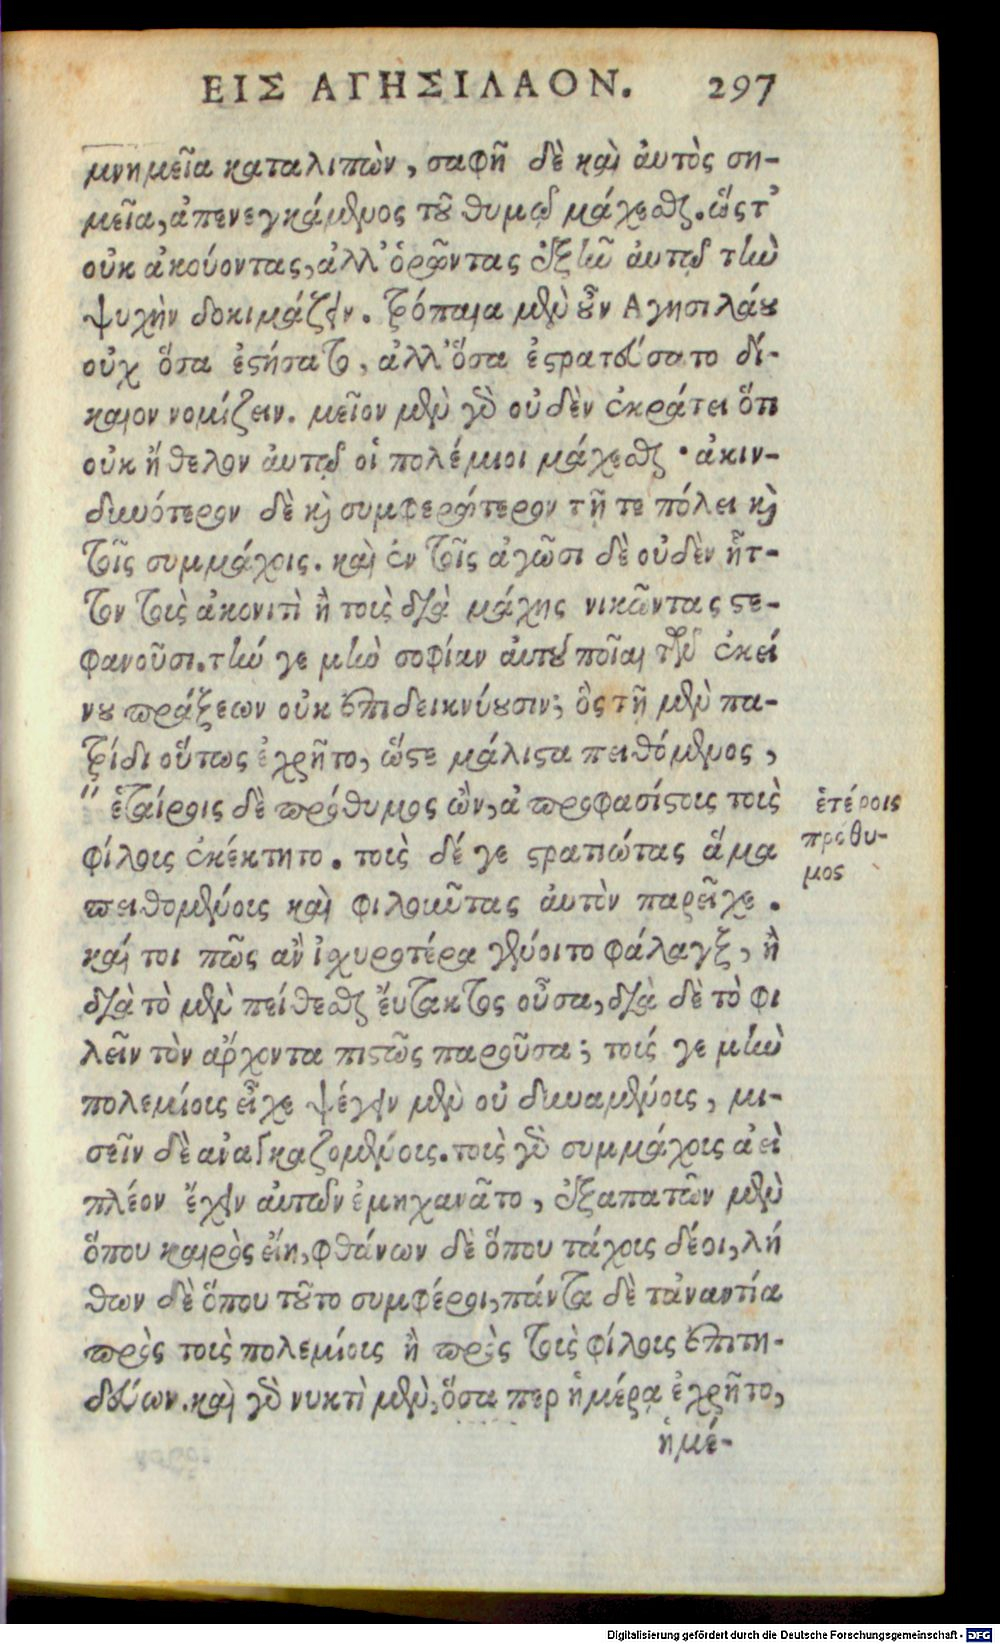 ΕΙΣ ΑΓΗΣΙΛΑΟΝ. 297
μνημεῖα καταλιπὼν, σαφῆ δὲ καὶ ἀυτὸς ση-
μεῖα, ἀπενεγκάμενος τοῦ θυμῷ μάχεσθαι. ὥςτ'
οὐκ ἀκούοντας, ἀλλ' ὁρῶντας ἐξεῖναι ἀυτοῦ τὴν
ψυχὴν δοκιμάζειν. τρόπαια μὲν οὖν Αγησιλάου
οὐχ ὅσα ἐστήσατο, ἀλλ' ὅσα ἐστρατεύσατο δί-
καιον νομίζειν. μεῖον μὲν γὰρ οὐδὲν ἐκράτει ὅτι
οὐκ ἤθελον ἀυτῷ οἱ πολέμιοι μάχεσθαι · ἀκιν-
δυνότερον δὲ καὶ συμφερώτερον τῇ τε πόλει καὶ
τοῖς συμμάχοις. καὶ ἐν τοῖς ἀγῶσι δὲ οὐδὲν ἧτ-
τον τοὺς ἀκονιτὶ ἢ τοὺς διὰ μάχης νικῶντας στε-
φανοῦσι. τήν γε μὴν σοφίαν ἀυτοῦ ποῖαι τῶν ἐκεί
νου πράξεων οὐκ ἐπιδεικνύουσιν; ὃς τῇ μὲν πα-
τρίδι οὕτως ἐχρῆτο, ὥστε μάλιστα πειθόμενος,
" ἑταίροις δὲ πρόθυμος ὢν, ἀπροφασίστους τοὺς
φίλους ἐκέκτητο. τοὺς δέ γε στρατιώτας ἅμα
πειθομένους καὶ φιλοῦντας ἀυτὸν παρεῖχε.
καί τοι πῶς ἂν ἰχυροτέρα γένοιτο φάλαγξ, ἢ
διὰ τὸ μὲν πείθεσθαι ἔυτακτος οὖσα, διὰ δὲ τὸ φι
λεῖν τὸν ἄρχοντα πιστῶς παροῦσα; τούς γε μὴν
πολεμίους εἶχε ψέγειν μὲν οὐ δυναμένους, μι-
σεῖν δὲ ἀναγκαζομένους. τοὺς γὰρ συμμάχους ἀεὶ
πλέον ἔχειν ἀυτῶν ἐμηχανᾶτο, ἐξαπατῶν μὲν
ὅπου καιρὸς εἴη, φθάνων δὲ ὅπου τάχους δέοι, λή
θων δὲ ὅπου τοῦτο συμφέροι, πάντα δὲ τἀναντία
πρὸς τοὺς πολεμίους ἢ πρὸς τοὺς φίλους ἐπιτη-
δεύων. καὶ γὰρ νυκτὶ μὲν, ὅσα περ ἡμέρᾳ ἐχρῆτο,
ἡμέ-
ἑτέροις
πρόθυ-
μος
Digitalisierung gefördert durch die Deutsche Forschungsgemeinschaft - DFG